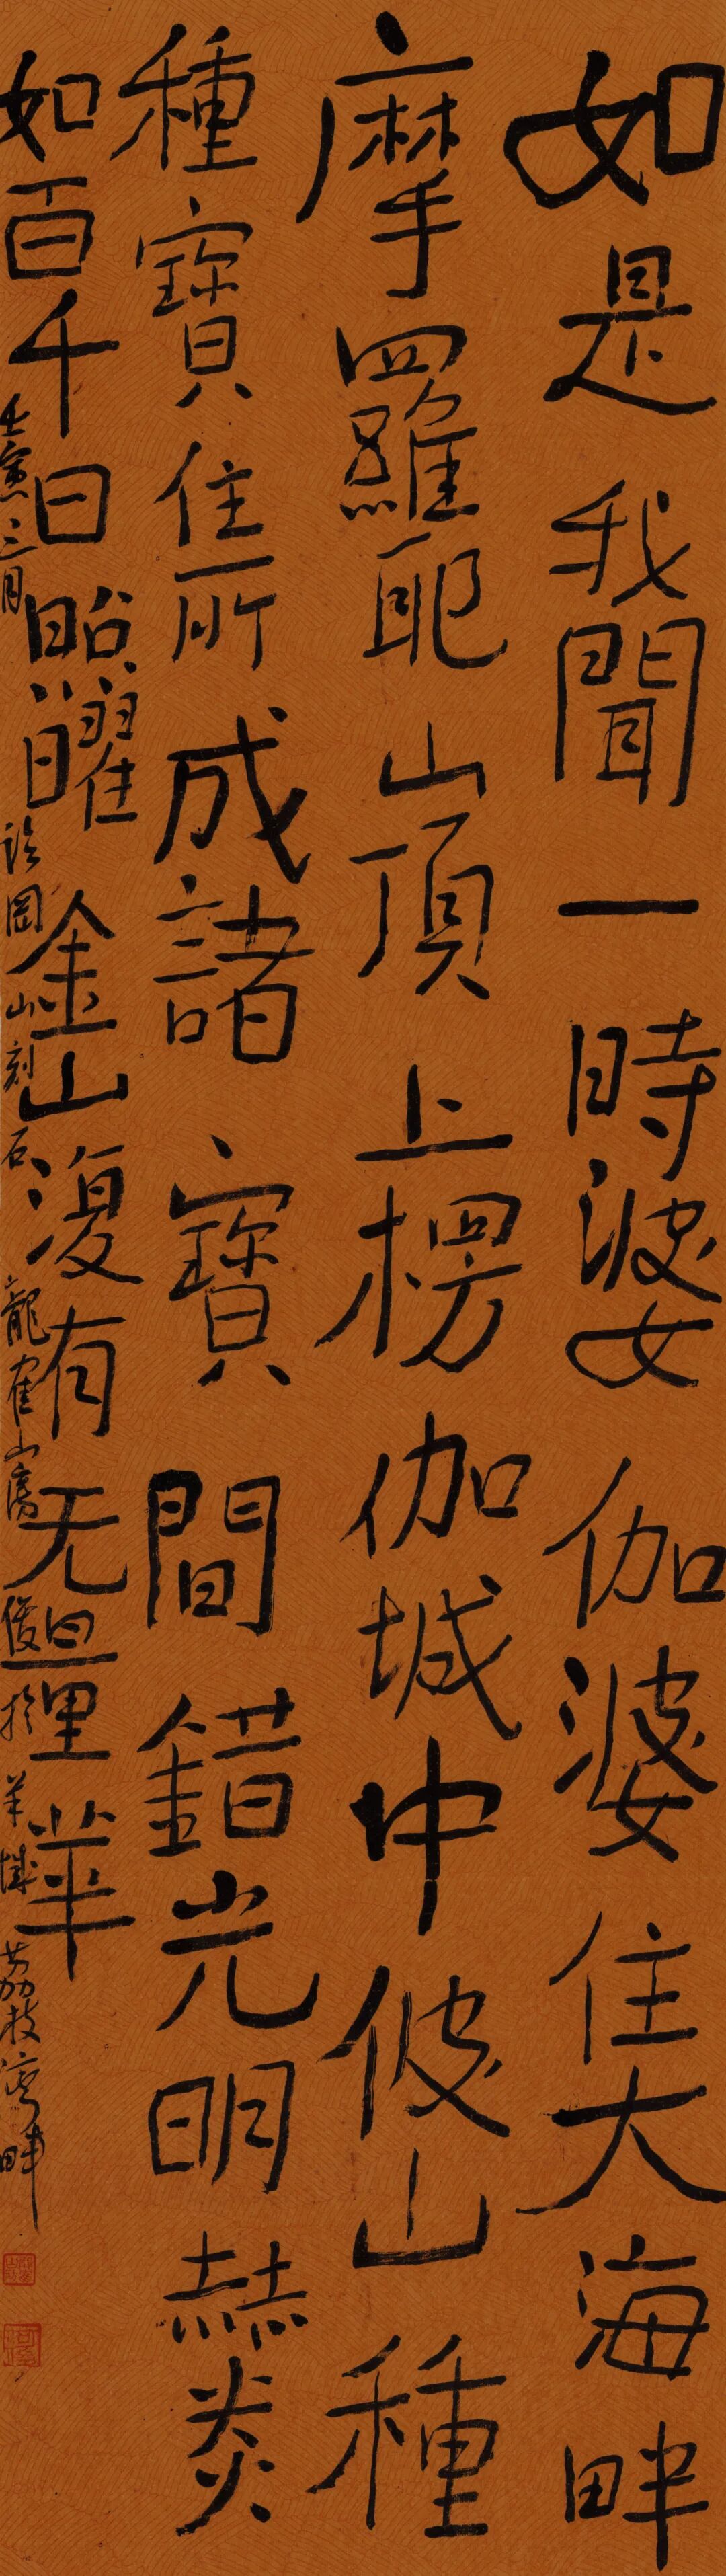 如是我聞一時婆伽婆住大海畔
摩羅耶山頂上楞伽城中彼山種
種寶住所成諸寶間錯光明赫炎
如百千日照曜金山復有无量華
壬寅三月 臨岡山刻石 龍雀山房 俊 於羊城荔枝灣畔